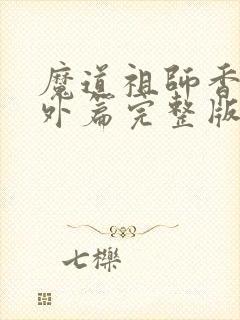 魔道祖師香
外篇完整版
七櫟